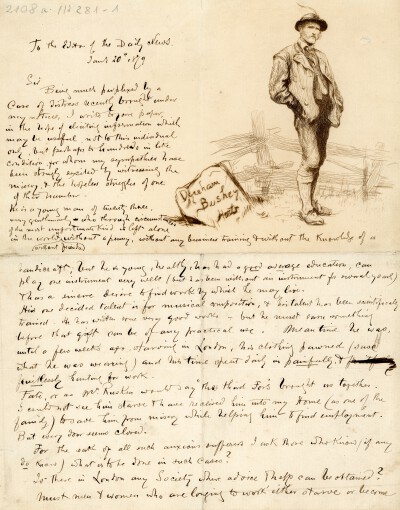 2108a-IN 281-1
To the Editor of the Daily News.
20th
Sir
Being much perplexed by a
Case of distress recently brought under
my notice, I write to your paper
in the hope of eliciting information which
may be useful not to this individual
only, but perhaps to hundreds in like
condition for whom my sympathies have
been strongly excited by witnessing the
misery, & the hopeless struggles of one
of their number.
He is a young man of twenty three,
very gentlemanly, who through circumstances
of the most unfortunate kind is left alone
in the world, without a penny, without any business training & without the knowledge of a
without friends
handicraft, but he is young, healthy, has had a good average education, can
play one instrument very well (but has been without an instrument for several years)
& has a sincere desire to find work by which he may live.
His one decided talent is for musical composition, & this talent has been
trained. He has written some very good works - but he must earn something
before that gift can be of any practical use. Meantime he was,
until a few weeks ago, starving in London, his clothing pawned (save
what he was wearing) and his time spent daily in painfully, &
hunting for work.
Fate, or as Mr Ruskin would say "the third Fors" brought us together.
I could not see him starve & have received him into my home (as one of the
family) to save him from misery while helping him to find employment.
But every door seems closed.
For the sake of all such anxious sufferers I ask those who know (if any
do know) what is to be done in such cases?
Is there in London any Society where advice & help can be obtained?
Must men & women who are longing to work either starve or become